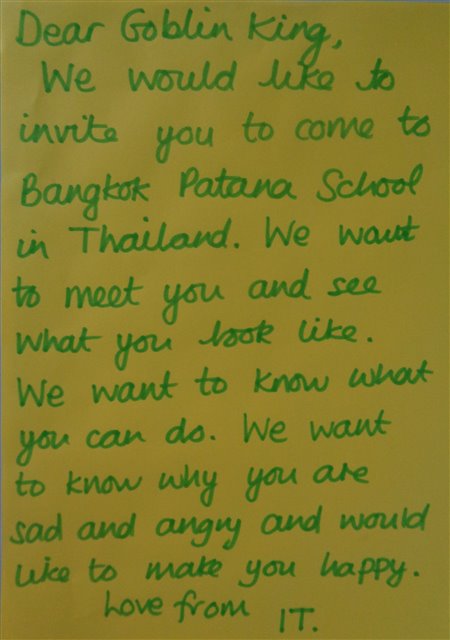 Dear Goblin King,
We would like to
invite you to come to
Bangkok Patana School
in Thailand. We want
to meet you and see
what you look like.
We want to know what
you can do. We want
to know why you are
sad and angry and would
like to make you happy.
Love from IT.